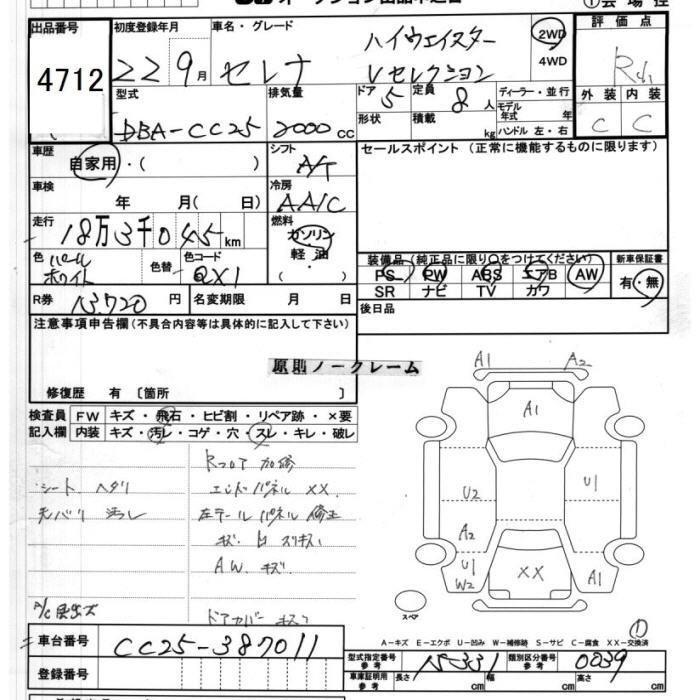 ①会場控
出品番号
4712
初度登録年月
22 9月
車名・グレード
セレナ
ハイウェイスター
Vセレクション
2WD
4WD
評価点
外装 内装
C C
型式
DBA-CC25
排気量
2000 cc
ドア 定員
5 8人
形状 積載
kg
ディーラー・並行
モデル年式 年
ハンドル 左・右
車歴
自家用・( )
シフト
A/T
セールスポイント(正常に機能するものに限ります)
車検
年 月( 日)
冷房
AA/C
走行
18万3千045km
燃料
ガソリン
軽油
色 パール
ホワイト
色替
色コード
QX1
装備品(純正品に限り○をつけてください)
新車保証書
PS PW ABS エアB AW
SR ナビ TV カワ
有・無
R券 13,720円
名変期限 月 日
後日品
注意事項申告欄(不具合内容等は具体的に記入して下さい)
原則ノークレーム
修復歴 有〔箇所 〕
検査員記入欄
FW キズ・飛石・ヒビ割・リペア跡・×要
内装 キズ・汚レ・コゲ・穴・スレ・キレ・破レ
Rフロア 加修
シート ヘタリ
エンドパネル XX
天バリ 汚レ
左テール パネル 修正
AW キズ
ドアカバー
A1 A2
A1
U2 U1
A2
U1
W2
XX
A1
スペア
①
A-キズ E-エクボ U-凹み W-補修跡 S-サビ C-腐食 XX-交換済
車台番号
CC25-387011
型式指定番号 参考 15331
類別区分番号 参考 0039
登録番号
車庫証明用 参考 長さ cm 幅 cm 高さ cm